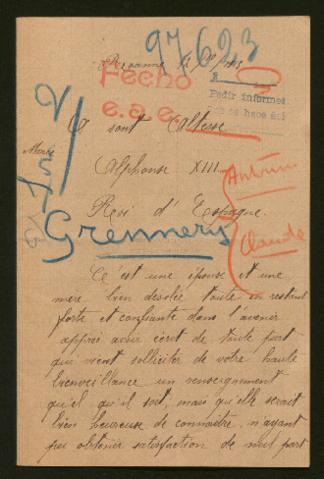 97623
Roanne le
Fecho
e.a.e.
Pedir informes
A sont Altesse
Alphonse XIII
Roi d'Espagne
Antrim
Grennery
Claude
C'est une épouse et une
mere bien desolée toute en restant
forte et confiante dans l'avenir
appres avoir ecrit de toute part
qui vient solliciter de votre haute
bienveillance un renseignement
quel qu'il soit, mais qu'elle serait
bien heureuse de connaitre, n'ayant
peu obtenir satisfaction de nul part